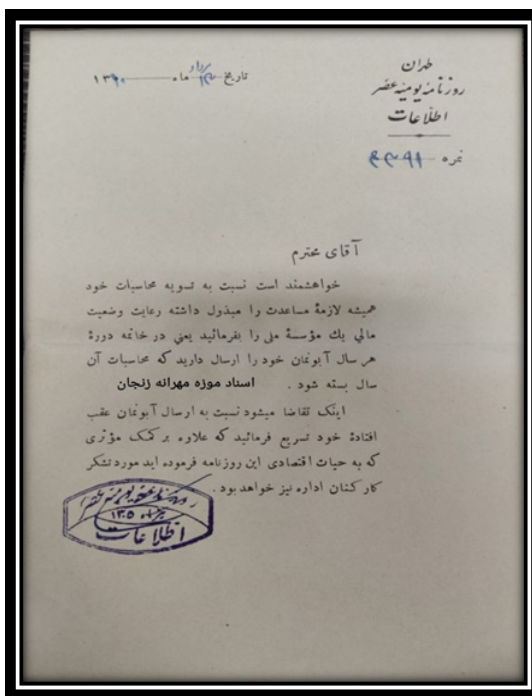 طهران
روزنامهٔ یومیهٔ عصر
اطلاعات
نمره
تاریخ ماه ۱۳۲۰
آقای محترم
خواهشمند است نسبت به تسویه محاسبات خود
همیشه لازمهٔ مساعدت را مبذول داشته رعایت وضعیت
مالی یك مؤسسهٔ ملی را بفرمائید یعنی در خاتمه دورهٔ
هر سال آبونمان خود را ارسال دارید که محاسبات آن
سال بسته شود .
اسناد موزه مهرانه زنجان
اینک تقاضا میشود نسبت به ارسال آبونمان عقب
افتادهٔ خود تسریع فرمائید که علاوه بر کمک مؤثری
که به حیات اقتصادی این روزنامه فرموده اید مورد تشکر
کارکنان اداره نیز خواهد بود .
روزنامه یومیه عصر
۱۳۰۵
اطلاعات